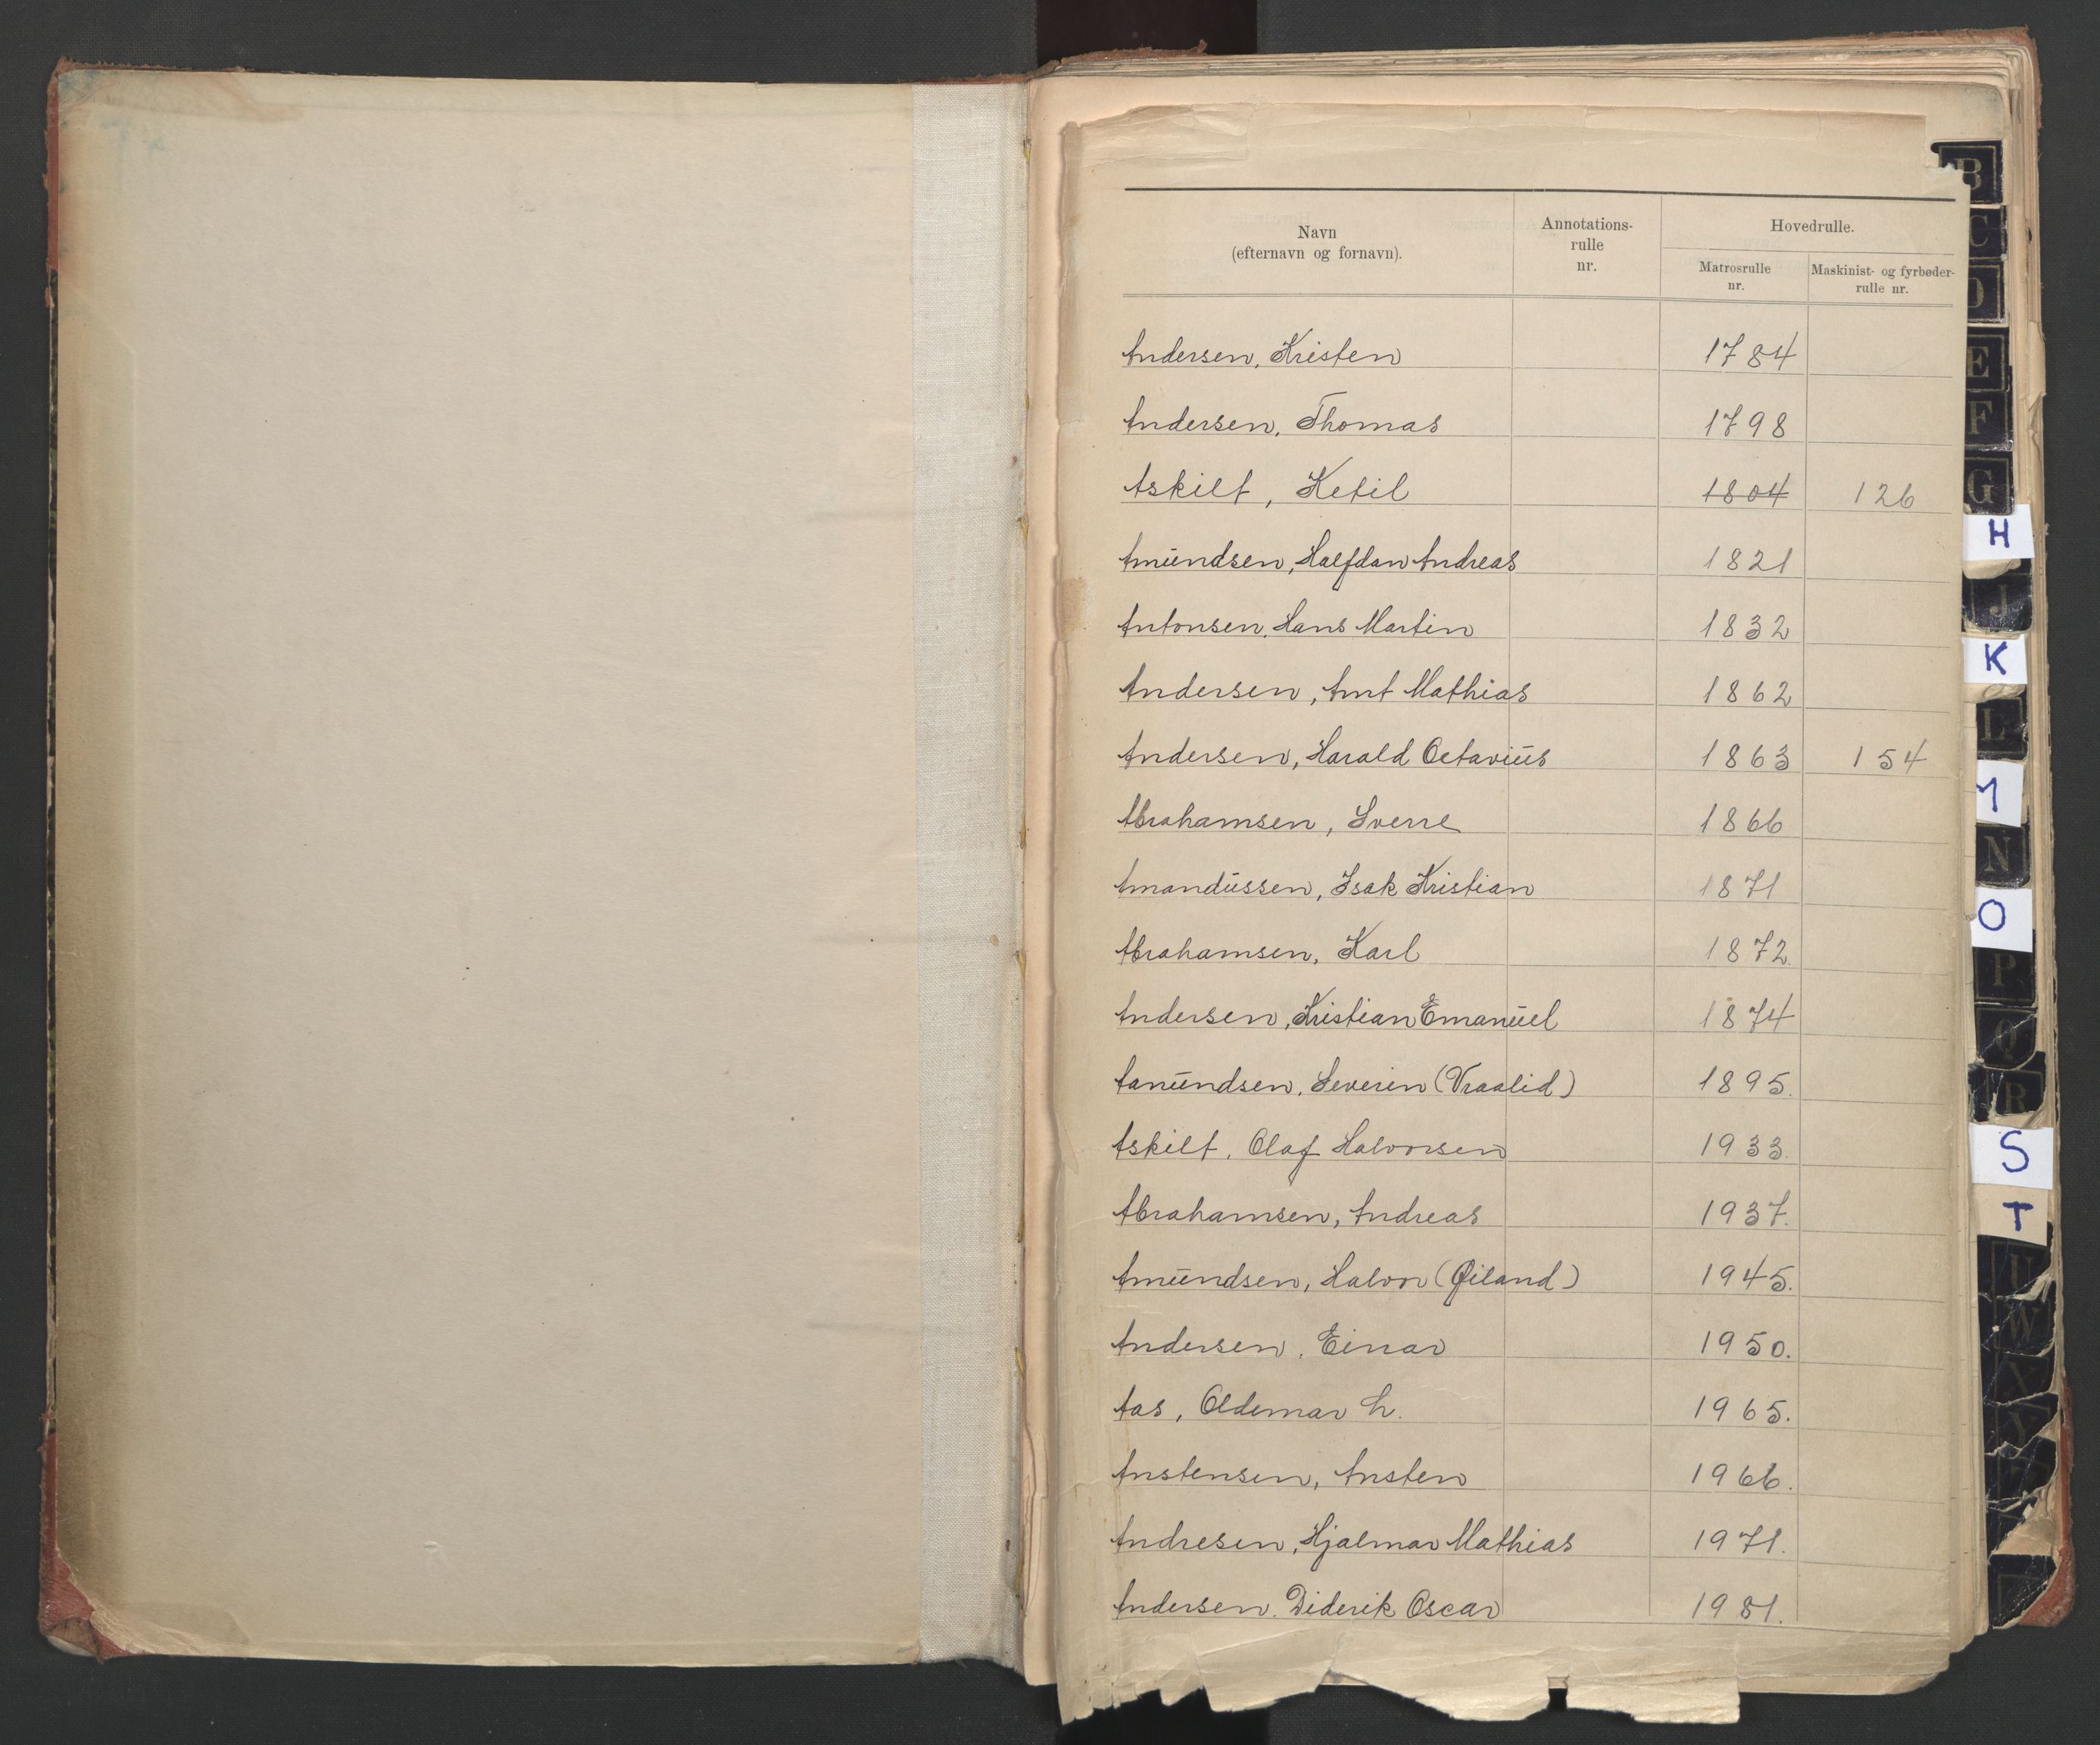 Navn
(efternavn og fornavn).
Annotations-
rulle
nr.
Hovedrulle.
Matrosrulle
nr.
Maskinist- og fyrbøder-
rulle nr.
Andersen, Kristen 1784
Andersen, Thomas 1798
Askilt, Ketil 1804 126
Amundsen, Halfdan Andreas 1821
Antonsen, Hans Martin 1832
Andersen, Amt Mathias 1862
Andersen, Harald Octavius 1863 154
Abrahamsen, Sverre 1866
Amandussen, Isak Kristian 1871
Abrahamsen, Karl 1872.
Andersen, Kristian Emanuel 1874
Aanundsen, Severin (Vraalid) 1895.
Askilt, Olaf Halvorsen 1933.
Abrahamsen, Andreas 1937.
Amundsen, Halvor (Øiland) 1945.
Andersen, Einar 1950.
Aas, Oldemar H. 1965.
Anstensen, Ansten 1966.
Andresen, Hjalmar Mathias 1971.
Andersen. Diderik Oscar 1981.
B
C
D
E
F
G
H
J
K
L
M
N
O
P
Q
R
S
T
U
W